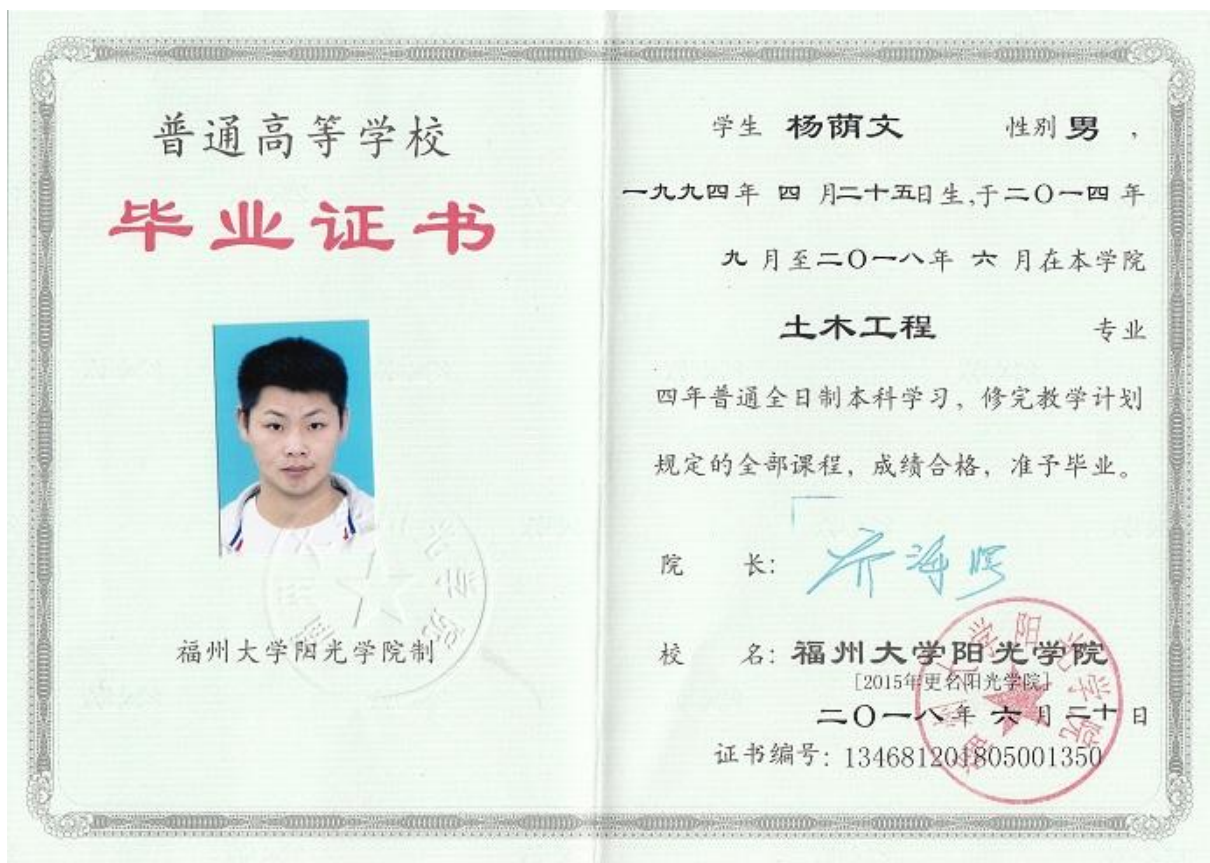 普通高等学校
毕业证书
福州大学阳光学院制
学生 杨荫文 性别 男 ，
一九九四年 四 月二十五日生,于二〇一四年
九 月至二〇一八年 六 月在本学院
土木工程 专业
四年普通全日制本科学习，修完教学计划
规定的全部课程，成绩合格，准予毕业。
院 长:
校 名: 福州大学阳光学院
[2015年更名阳光学院]
二〇一八年 六 月二十日
证书编号: 134681201805001350
福州大学阳光学院